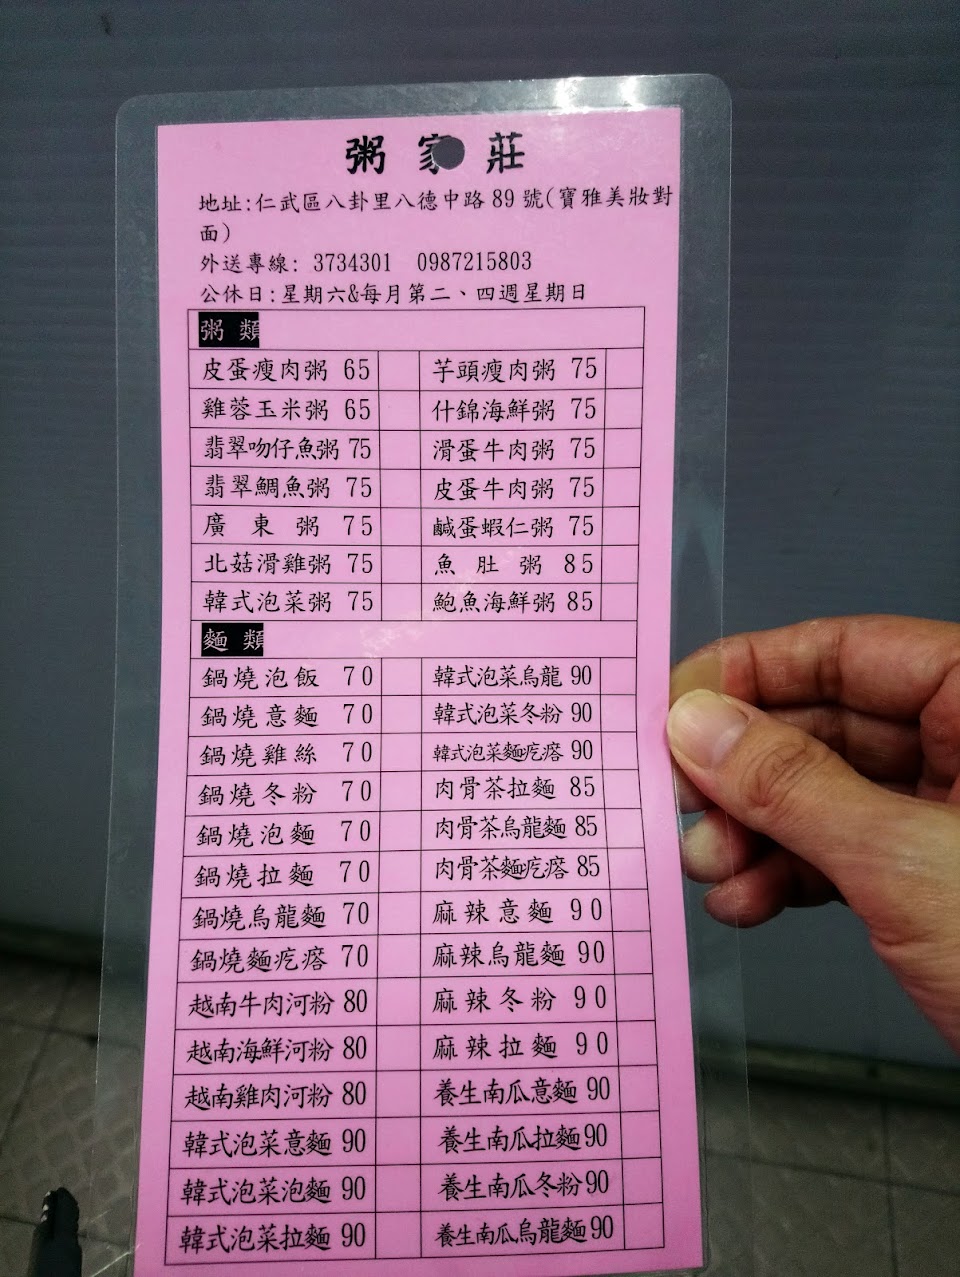 粥家莊
地址:仁武區八卦里八德中路89號(寶雅美妝對
面)
外送專線: 3734301 0987215803
公休日:星期六&每月第二、四週星期日
粥 類
皮蛋瘦肉粥 65 芋頭瘦肉粥 75
雞蓉玉米粥 65 什錦海鮮粥 75
翡翠吻仔魚粥 75 滑蛋牛肉粥 75
翡翠鯛魚粥 75 皮蛋牛肉粥 75
廣東粥 75 鹹蛋蝦仁粥 75
北菇滑雞粥 75 魚肚粥 85
韓式泡菜粥 75 鮑魚海鮮粥 85
麵 類
鍋燒泡飯 70 韓式泡菜烏龍 90
鍋燒意麵 70 韓式泡菜冬粉 90
鍋燒雞絲 70 韓式泡菜麵疙瘩 90
鍋燒冬粉 70 肉骨茶拉麵 85
鍋燒泡麵 70 肉骨茶烏龍麵 85
鍋燒拉麵 70 肉骨茶麵疙瘩 85
鍋燒烏龍麵 70 麻辣意麵 90
鍋燒麵疙瘩 70 麻辣烏龍麵 90
越南牛肉河粉 80 麻辣冬粉 90
越南海鮮河粉 80 麻辣拉麵 90
越南雞肉河粉 80 養生南瓜意麵 90
韓式泡菜意麵 90 養生南瓜拉麵 90
韓式泡菜泡麵 90 養生南瓜冬粉 90
韓式泡菜拉麵 90 養生南瓜烏龍麵 90